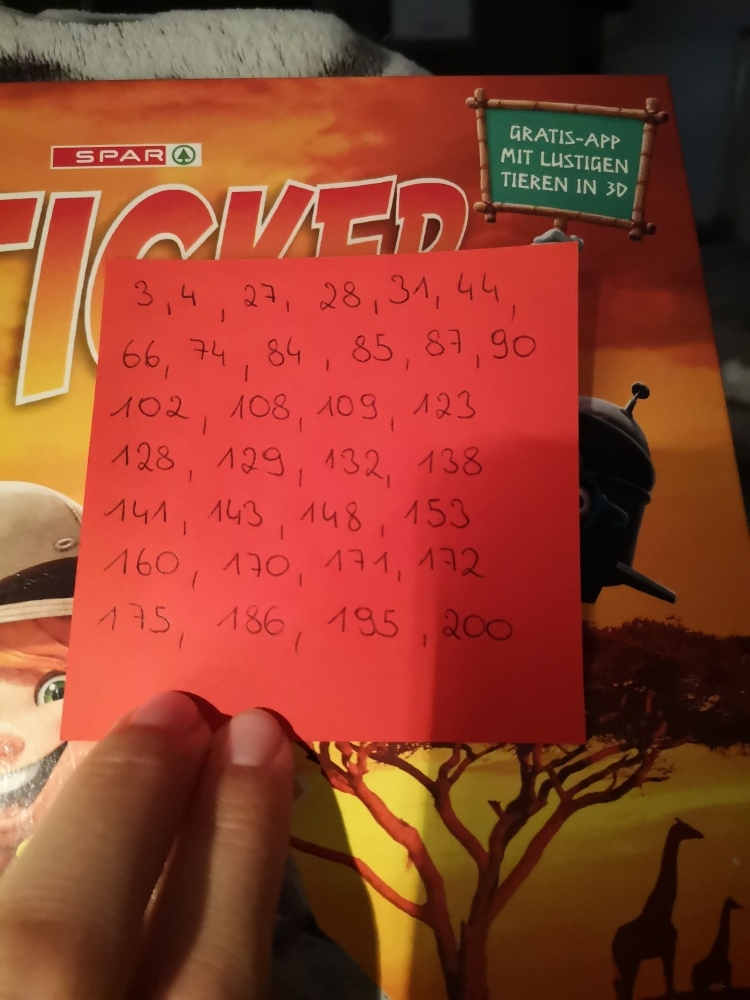 SPAR
GRATIS-APP
MIT LUSTIGEN
TIEREN IN 3D
TICKER
3, 4, 27, 28, 31, 44,
66, 74, 84, 85, 87, 90
102, 108, 109, 123
128, 129, 132, 138
141, 143, 148, 153
160, 170, 171, 172
175, 186, 195, 200